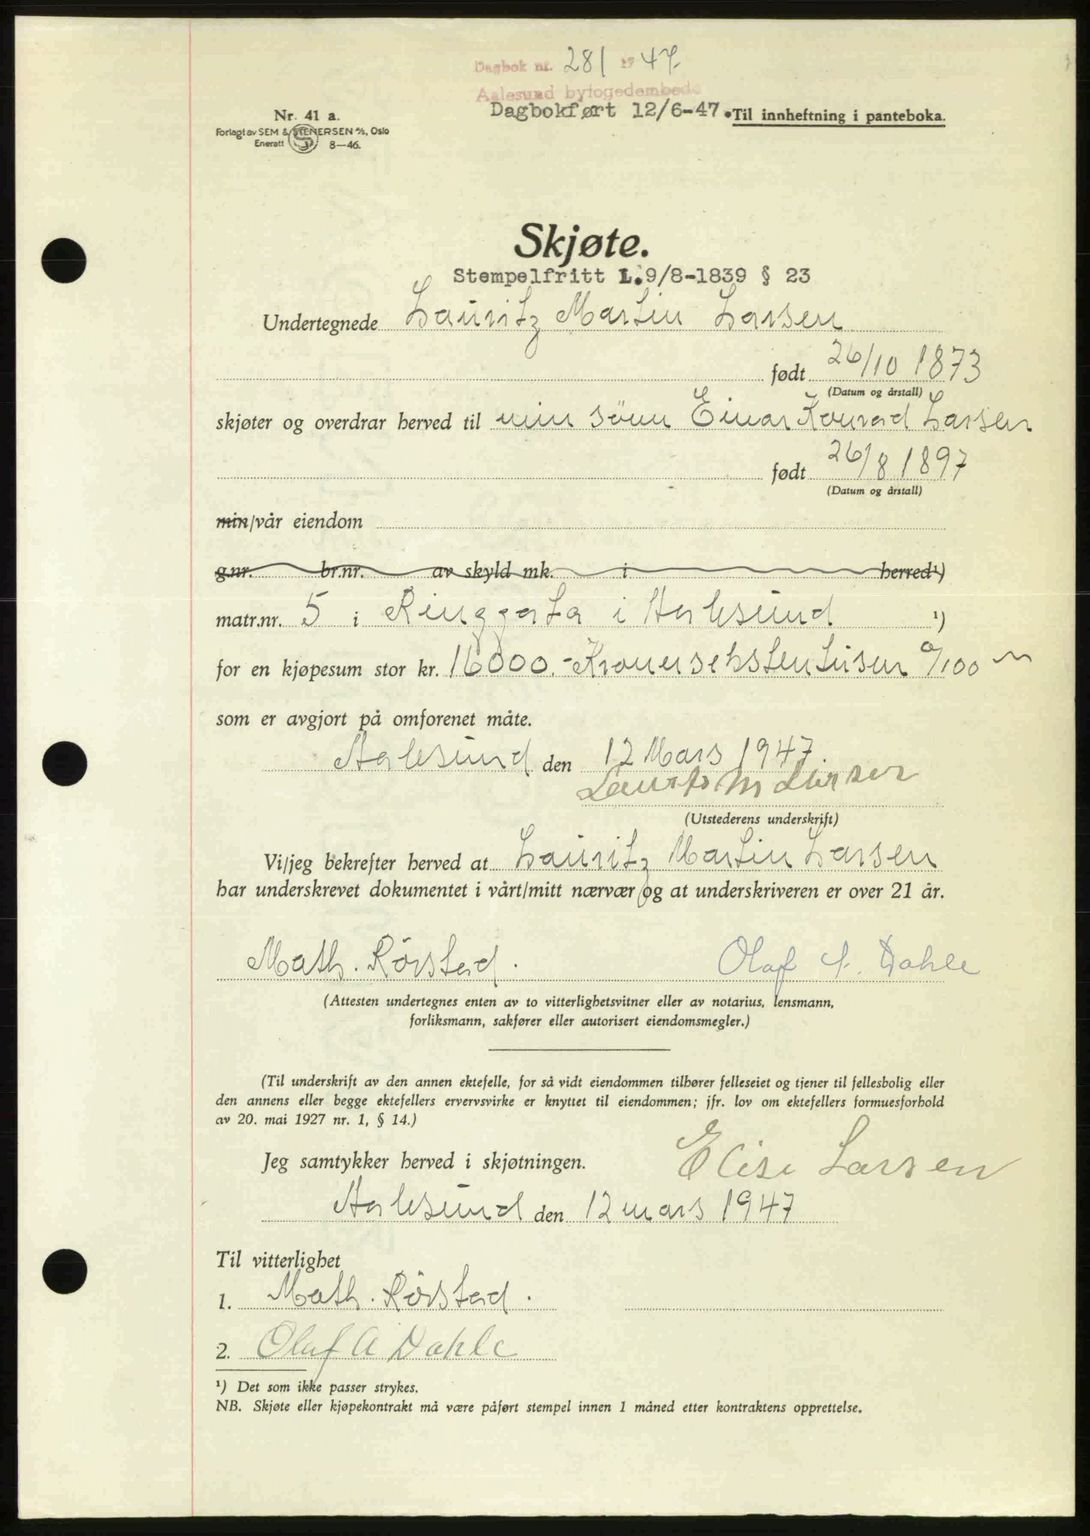 Dagbok nr. 281 1947.
Aalesund byfogedembede
Dagbokført 12/6-47. Til innheftning i panteboka.
Nr. 41 a.
Forlagt av SEM & STENERSEN A/S, Oslo
Enerett 8—46.
Skjøte.
Stempelfritt L.9/8-1839 § 23
Undertegnede Lauritz Martin Larsen
født 26/10 1873
(Datum og årstall)
skjøter og overdrar herved til min sønn Einar Konrad Larsen
født 26/8 1897
(Datum og årstall)
min/vår eiendom
g.nr. br.nr. av skyld mk. i herred¹)
matr.nr. 5 i Ringgata i Aalesund ¹)
for en kjøpesum stor kr. 16000.- Kronersekstentusen 0/100
som er avgjort på omforenet måte.
Aalesund den 12 Mars 1947
Lauritz M Larsen
(Utstederens underskrift)
Vi/jeg bekrefter herved at Lauritz Martin Larsen
har underskrevet dokumentet i vårt/mitt nærvær og at underskriveren er over 21 år.
Math. Rörstad. Olaf A. Dahle
(Attesten undertegnes enten av to vitterlighetsvitner eller av notarius, lensmann,
forliksmann, sakfører eller autorisert eiendomsmegler.)
(Til underskrift av den annen ektefelle, for så vidt eiendommen tilhører felleseiet og tjener til fellesbolig eller
den annens eller begge ektefellers ervervsvirke er knyttet til eiendommen; jfr. lov om ektefellers formuesforhold
av 20. mai 1927 nr. 1, § 14.)
Jeg samtykker herved i skjøtningen. Elise Larsen
Aalesund den 12 mars 1947
Til vitterlighet
1. Math. Rörstad.
2. Olaf A Dahle
¹) Det som ikke passer strykes.
NB. Skjøte eller kjøpekontrakt må være påført stempel innen 1 måned etter kontraktens opprettelse.